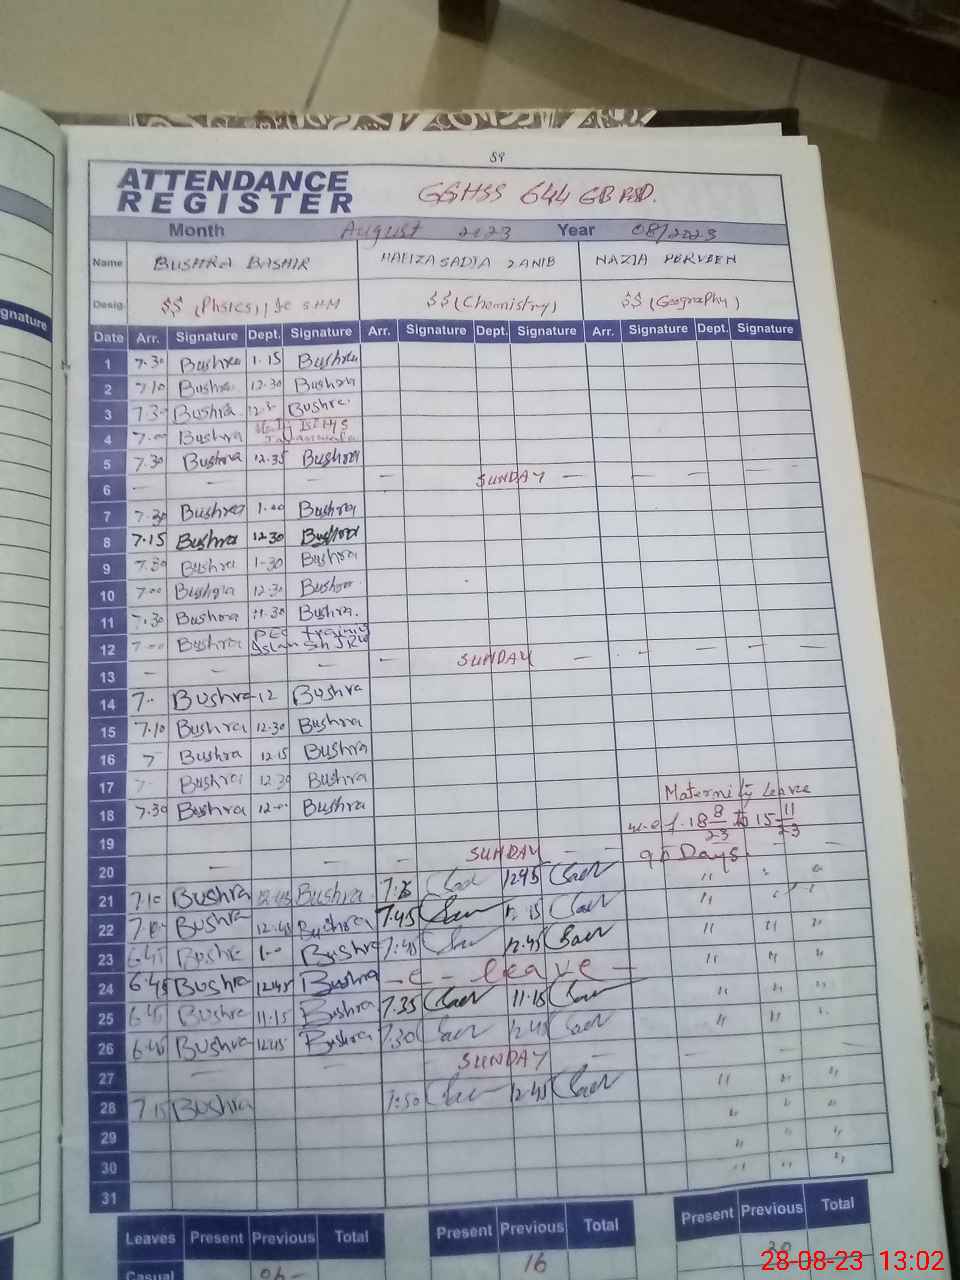 59
ATTENDANCE
REGISTER
GGHSS 644 GB FSD.
Month August 2023 Year 08/2023
Name BUSHRA BASHIR HAFIZA SADIA ZANIB NAZIA PERVEEN
Desig. SS (Phsics) SS (Chemistry) SS (Geography)
gnature
Date Arr. Signature Dept. Signature Arr. Signature Dept. Signature Arr. Signature Dept. Signature
1 7.30 Bushra 1.15 Bushra
2 7.10 Bushra 12.30 Bushra
3 7.30 Bushra Bushra
4 7.00 Bushra
5 7.30 Bushra 12.35 Bushra
6 — — — — SUNDAY — — — —
7 7.30 Bushra 1.00 Bushra
8 7.15 Bushra 12.30 Bushra
9 7.30 Bushra 1-30 Bushra
10 7.00 Bushra 12.30 Bushra
11 7.30 Bushra 11.30 Bushra.
12 7.00 Bushra
13 — — — — SUNDAY — — — —
14 7.. Bushra 12 Bushra
15 7.10 Bushra 12.30 Bushra
16 7 Bushra 12.15 Bushra
17 7 Bushra 12.30 Bushra
18 7.30 Bushra 12.00 Bushra Maternity Leave
19 w.e.f. 18 8/23 to 15 11/23
20 — — — SUNDAY — 90 Days. — —
21 7.10 Bushra 12.45 Bushra 12.45 "
22 Bushra 12.45 Bushra 7.45 "
23 6.45 Bushra 1.00 Bushra 7:45 12.45 " " "
24 6.45 Bushra 12.45 Bushra - c - leave - " " "
25 6.45 Bushra 11.15 Bushra 7.35 11.15 " " "
26 6.40 Bushra 12.45 Bushra 7.30 12.45 " "
27 — — SUNDAY — — — —
28 7.15 Bushra 7:50 12.45 " " "
29 " " "
30 " " "
31 " " "
Leaves Present Previous Total Present Previous Total Present Previous Total
Casual 06- 16 20
28-08-23 13:02